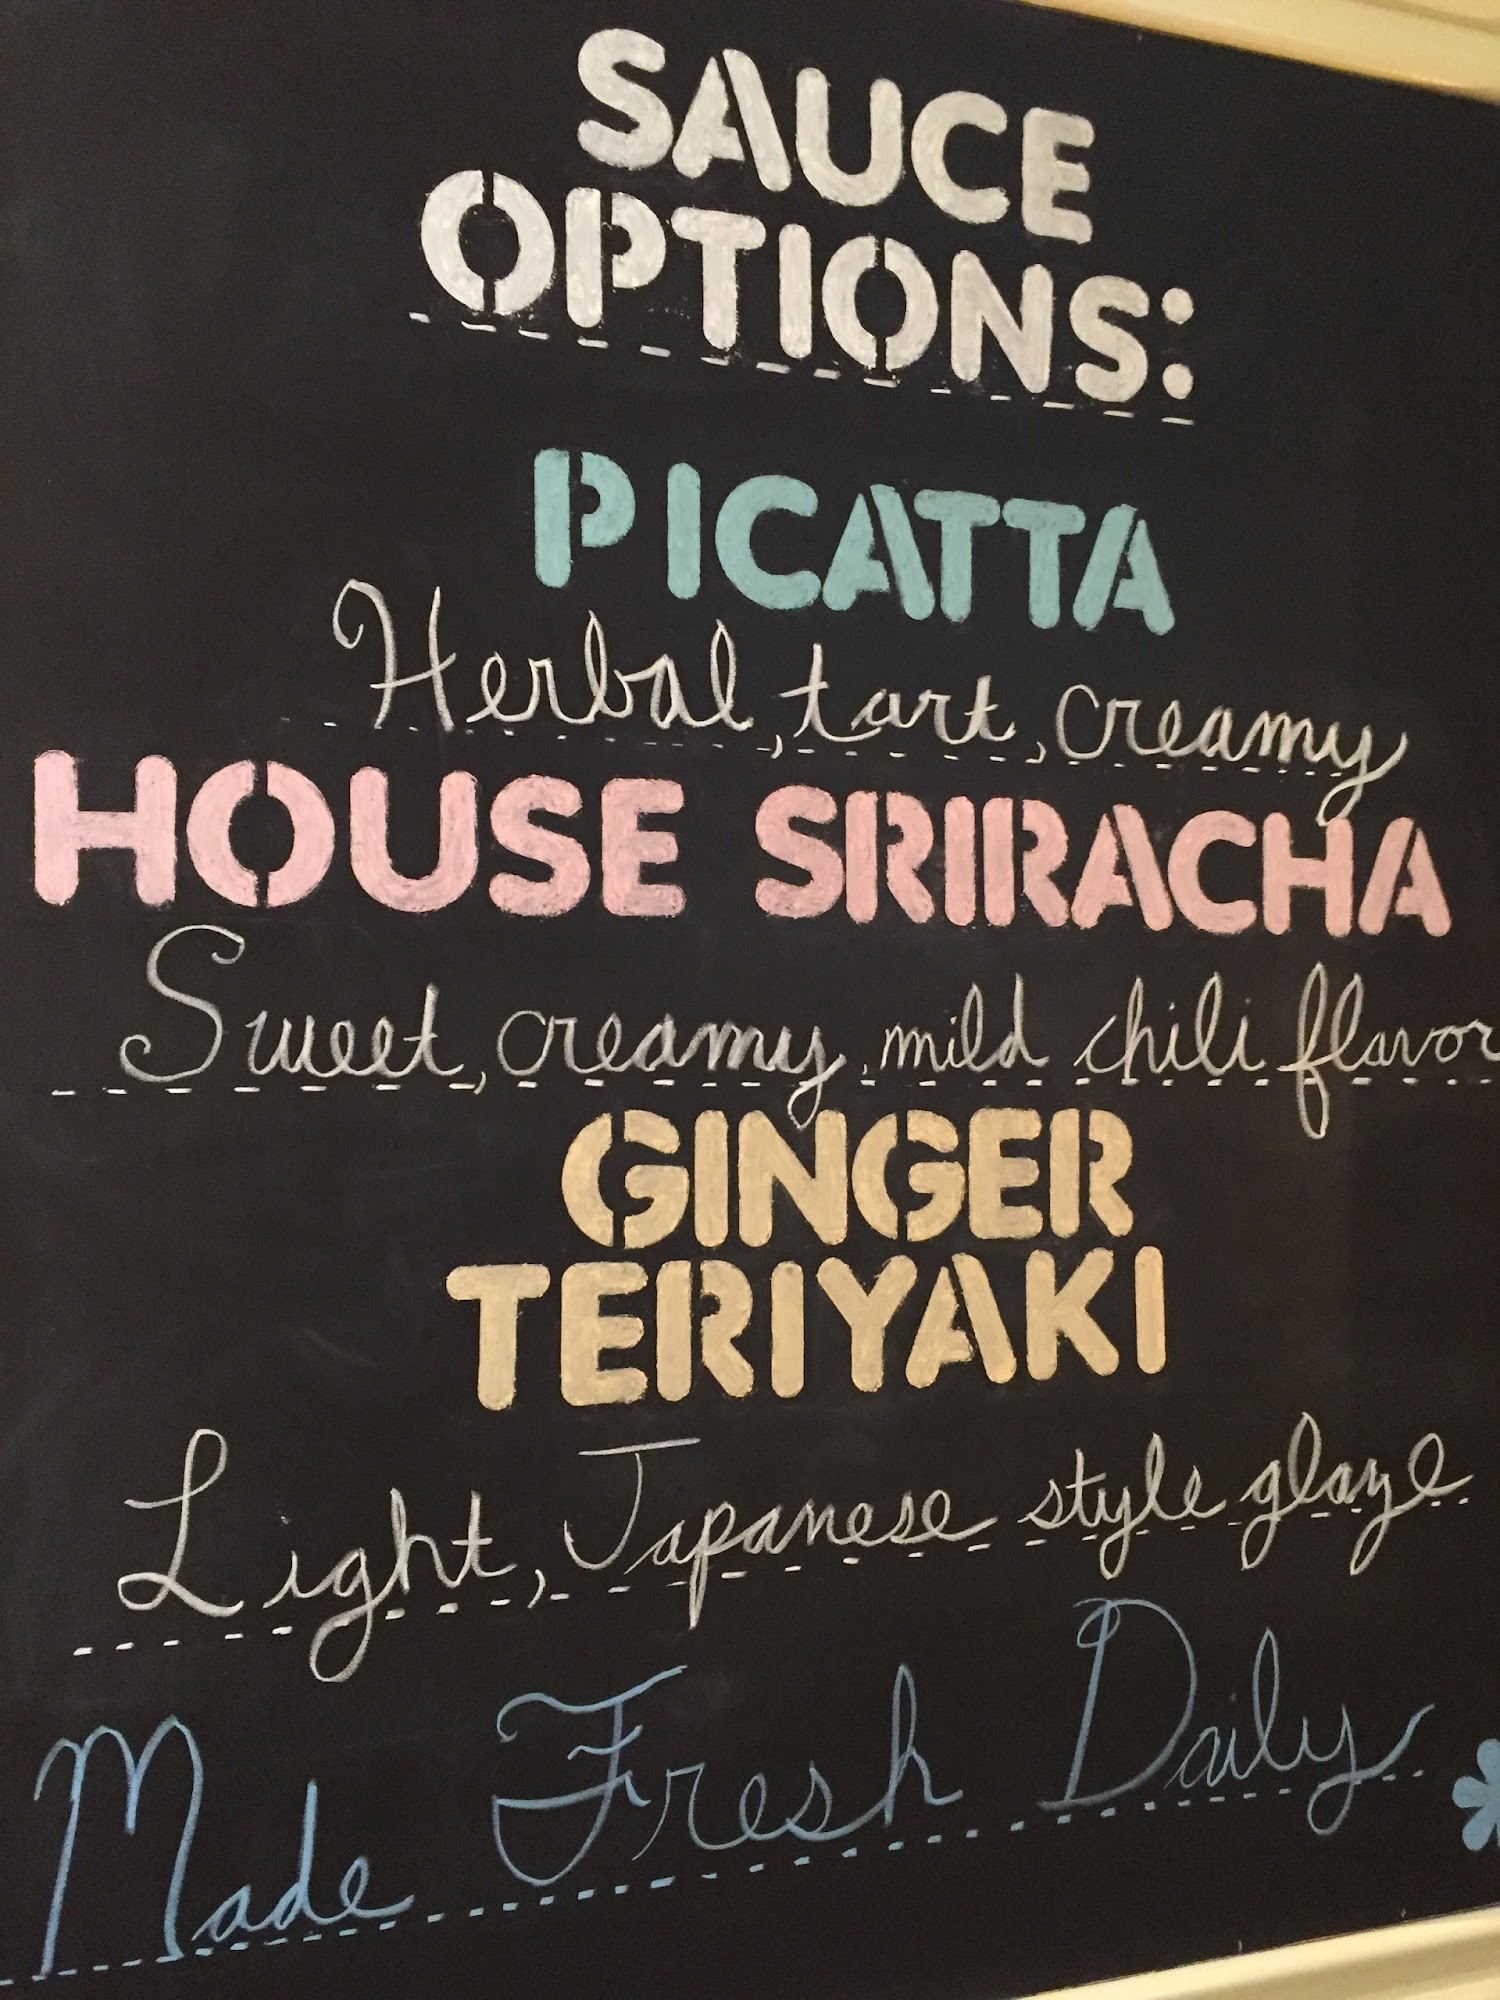 SAUCE
OPTIONS:
PICATTA
Herbal, tart, creamy
HOUSE SRIRACHA
Sweet, creamy, mild chili flavor
GINGER
TERIYAKI
Light, Japanese style glaze
Made Fresh Daily